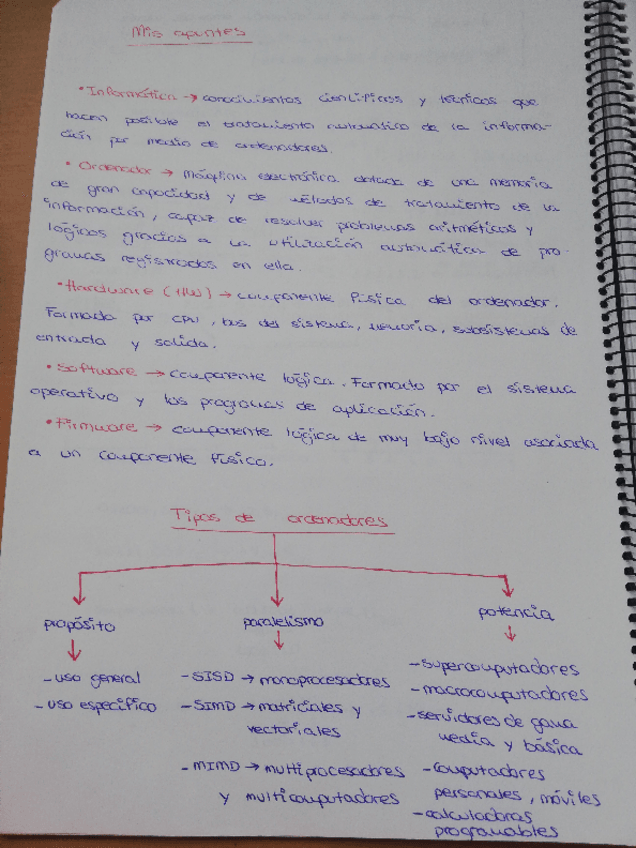 Mis apuntes
• Informática → conocimientos científicos y técnicos que
hacen posible el tratamiento automático de la informa-
ción por medio de ordenadores.
• Ordenador → máquina electrónica dotada de una memoria
de gran capacidad y de métodos de tratamiento de la
información, capaz de resolver problemas aritméticos y
lógicos gracias a la utilización automática de pro-
gramas registrados en ella.
• Hardware (HW) → componente física del ordenador.
Formado por CPU, bus del sistema, memoria, subsistemas de
entrada y salida.
• Software → componente lógica. Formado por el sistema
operativo y los programas de aplicación.
• Firmware → componente lógica de muy bajo nivel asociada
a un componente físico.
Tipos de ordenadores
propósito
- uso general
- uso específico
paralelismo
- SISD → monoprocesadores
- SIMD → matriciales y
vectoriales
- MIMD → multiprocesadores
y multicomputadores
potencia
- supercomputadores
- macrocomputadores
- servidores de gama
media y básica
- computadores
personales, móviles
- calculadoras
programables